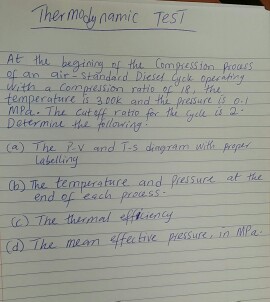 Thermodynamic TEST
At the begining of the Compression process
of an air-standard Diesel Cycle operating
with a compression ratio of 18, the
temperature is 300K and the pressure is 0.1
MPa. The cutoff ratio for the cycle is 2.
Determine the following.
(a) The P-V and T-S diagram with proper
labelling
(b) The temperature and pressure at the
end of each process.
(c) The thermal efficiency
(d) The mean effective pressure, in MPa.